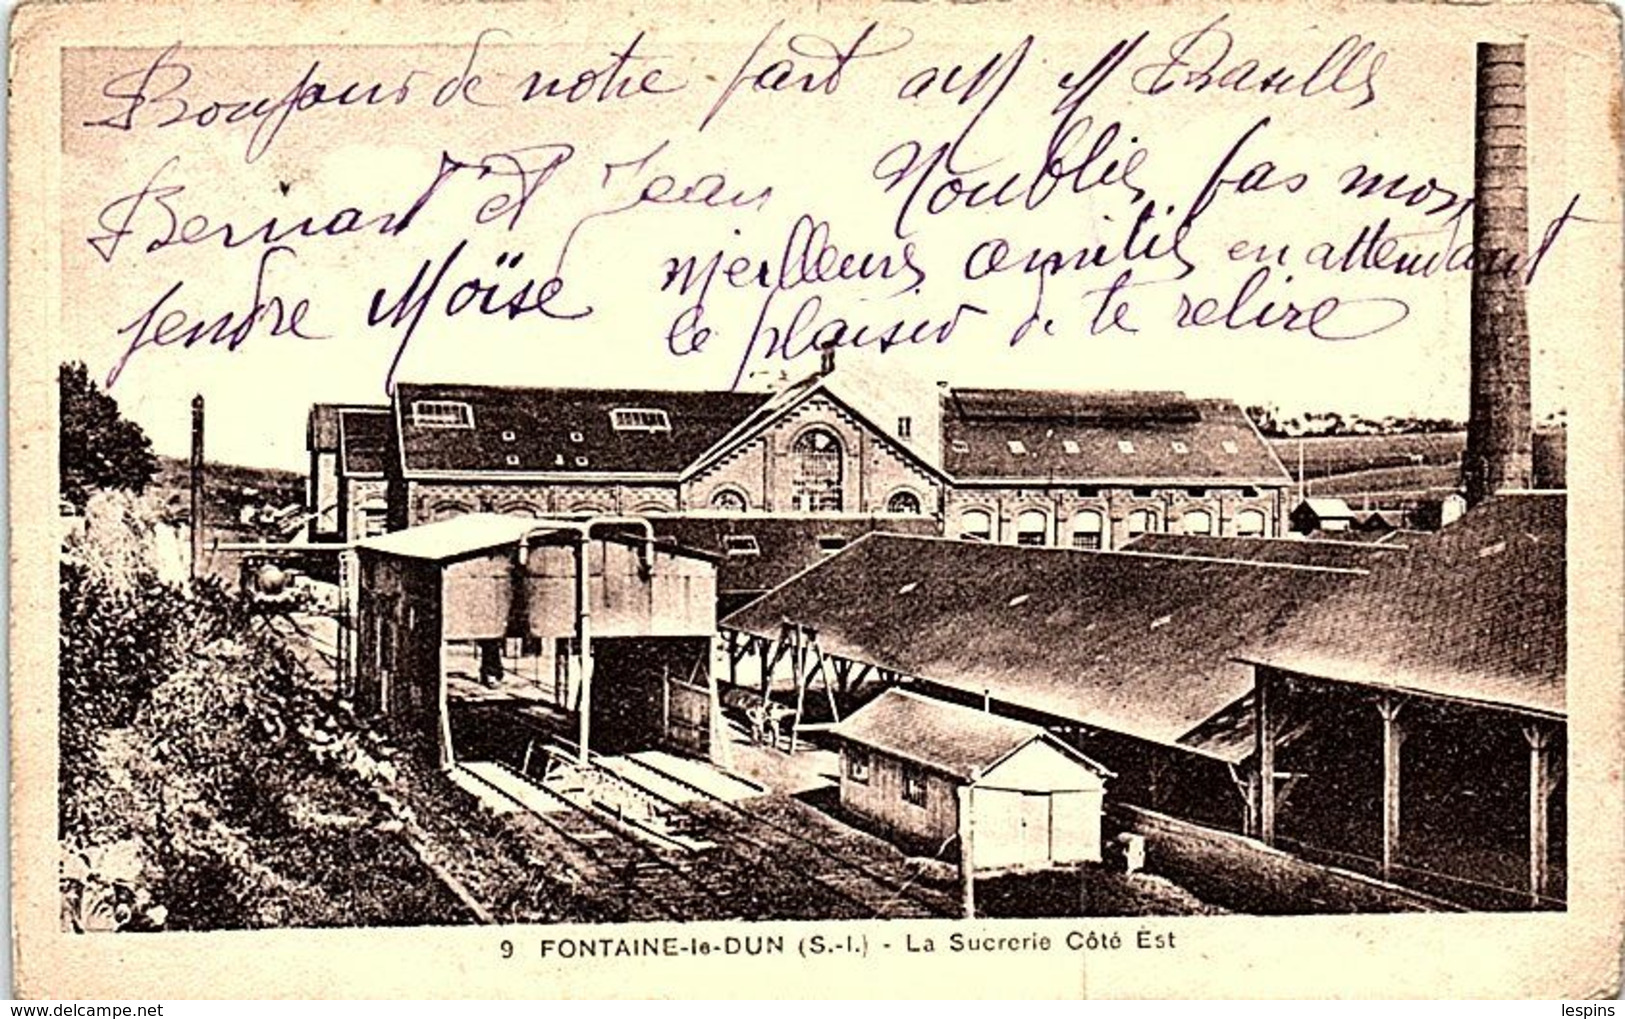 Bonjour de notre part à M M Braselle
Bernard et Jean N'oublie pas mon
gendre Moïse meilleurs amitiés en attendant
le plaisir de te relire
9 FONTAINE-le-DUN (S.-I.) - La Sucrerie Côté Est
delcampe.net
lespins